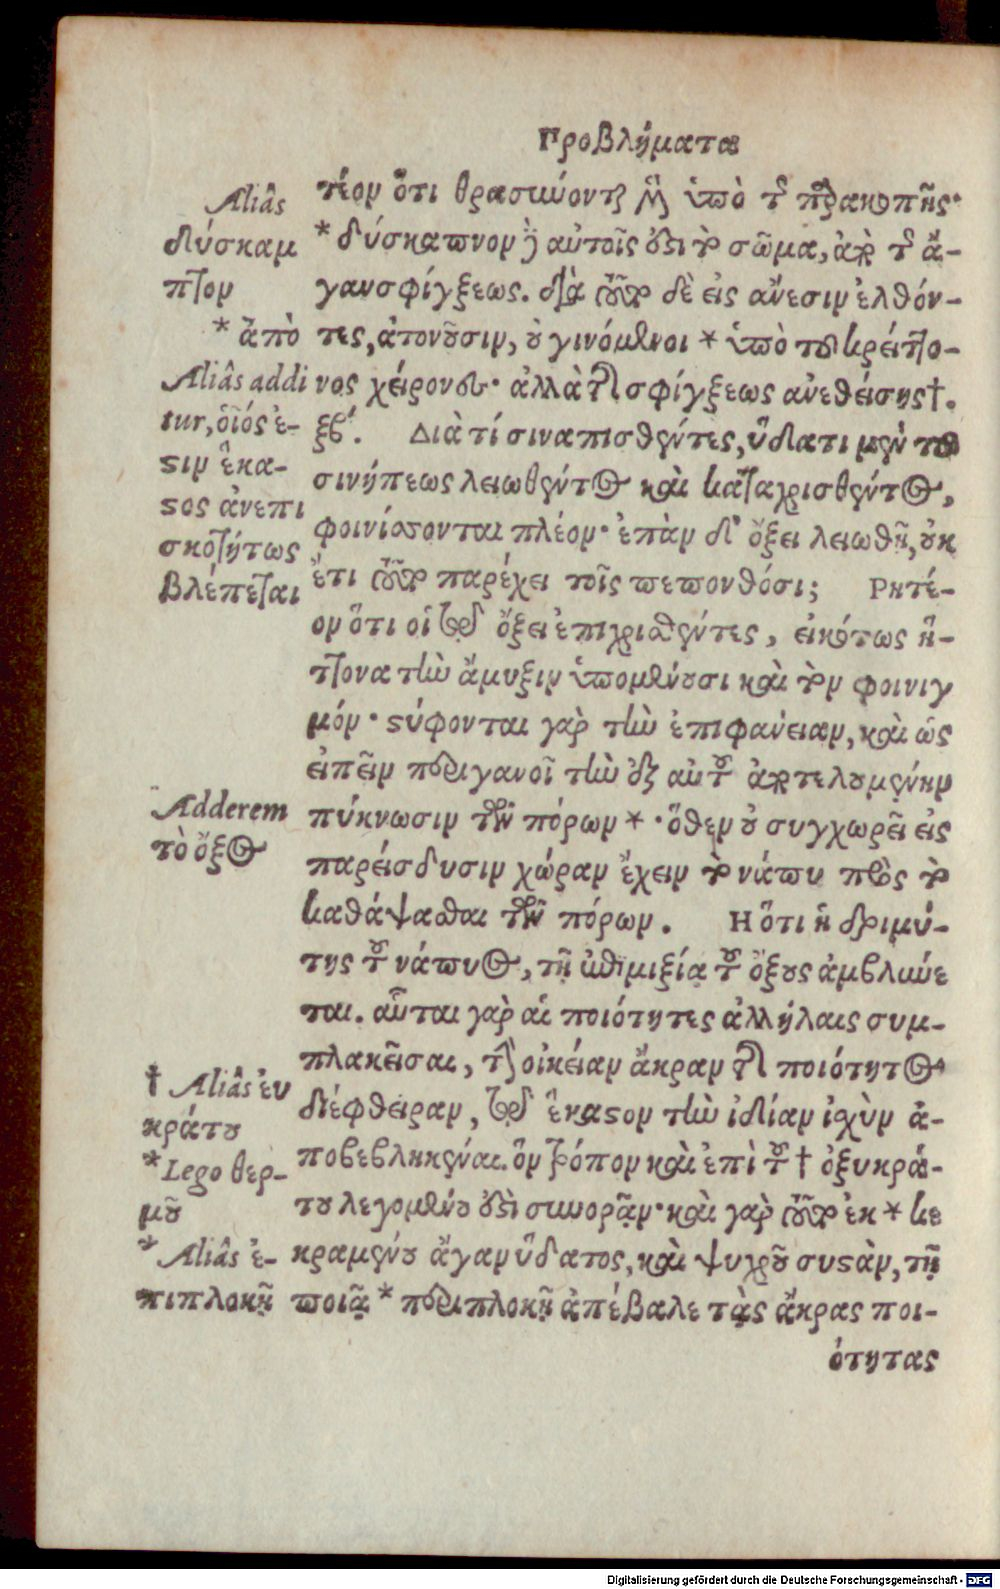 Προβλήματα
τέον ὅτι θρασύνονται μὲν ὑπὸ τῆς παρακοπῆς·
*δύσκαπνον γὰρ αὐτοῖς ἐστι τὸ σῶμα, ἀπὸ τῆς ἄ-
γαν σφίγξεως. διὰ τοῦτο δὲ εἰς ἄνεσιν ἐλθόν-
τες, ἀτονοῦσιν, οὐ γινόμενοι * ὑπὸ τοῦ κρείττο-
νος χείρονες· ἀλλὰ τῆς σφίγξεως ἀνεθείσης†.
ξβ΄. Διὰ τί σιναπισθέντες, ὕδατι μὲν τοῦ
σινήπεως λειωθέντος καὶ καταχρισθέντος,
φοινίσσονται πλέον· ἐπὰν δ' ὄξει λειωθῇ, οὐκ
ἔτι τοῦτο παρέχει τοῖς πεπονθόσι; Ρητέ-
ον ὅτι οἱ σὺν ὄξει ἐπιχρισθέντες, εἰκότως ἥ-
ττονα τὴν ἄμυξιν ὑπομένουσι καὶ τὸν φοινιγ
μόν· στύφονται γὰρ τὴν ἐπιφάνειαν, καὶ ὡς
εἰπεῖν περιγανοῖ τὴν ἐξ αὐτοῦ ἀποτελουμένην
πύκνωσιν τῶν πόρων *· ὅθεν οὐ συγχωρεῖ εἰς
παρείσδυσιν χώραν ἔχειν τὸ νάπυ πρὸς τὸ
καθάψασθαι τῶν πόρων. Η ὅτι ἡ δριμύ-
της τοῦ νάπυος, τῇ ἐπιμιξίᾳ τοῦ ὄξους ἀμβλύνε
ται. αὗται γὰρ αἱ ποιότητες ἀλλήλαις συμ-
πλακεῖσαι, τὴν οἰκείαν ἄκραν τῆς ποιότητος
διέφθειραν, σὺν ἕκαστον τὴν ἰδίαν ἰσχὺν ἀ-
ποβεβληκέναι. ὃν τρόπον καὶ ἐπὶ τοῦ † ὀξυκρά-
του λεγομένου ἔστι συνορᾷν· καὶ γὰρ τοῦτο ἐκ * κε
κραμένου ἄγαν ὕδατος, καὶ ψυχροῦ συστὰν, τῇ
ποιᾷ * περιπλοκῇ ἀπέβαλε τὰς ἄκρας ποι-
ότητας
Aliâs
δύσκαμ
πτον
* ἀπὸ
Aliâs addi
tur, οἷός ἐ-
στιν ἕκα-
στος ἀνεπι
σκοτήτως
βλέπεται
Adderem
τὸ ὄξος
† Aliâs ἐυ
κράτου
*Lego θερ-
μοῦ
* Aliâs ἐ-
πιπλοκῇ
Digitalisierung gefördert durch die Deutsche Forschungsgemeinschaft - DFG